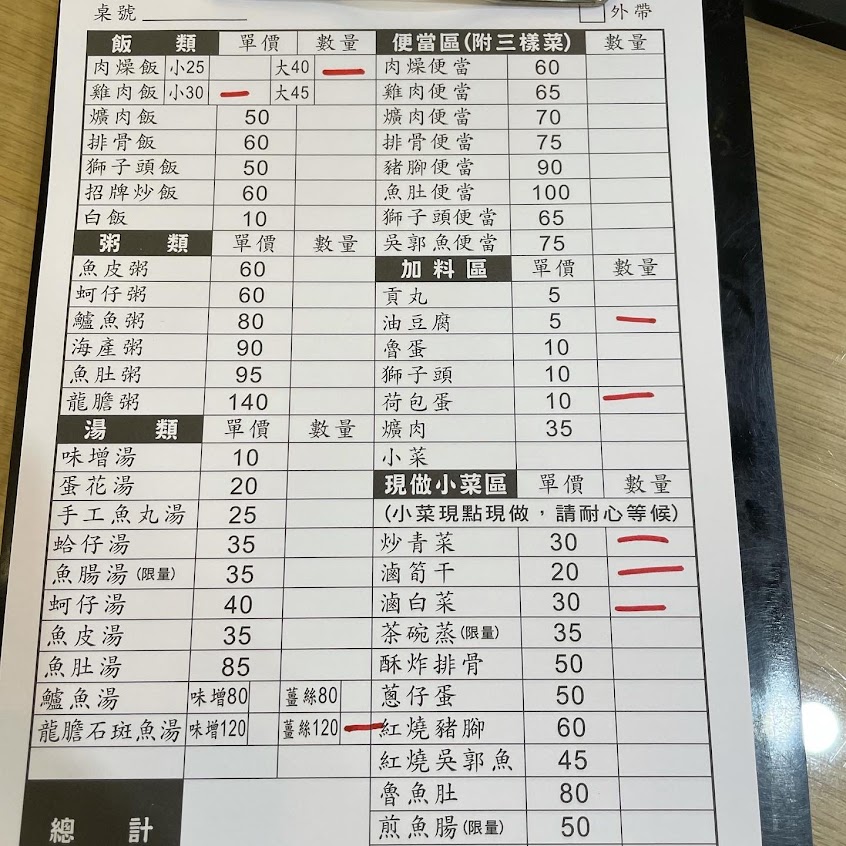 桌號
外帶
飯類 單價 數量
肉燥飯 小25 大40
雞肉飯 小30 大45
爌肉飯 50
排骨飯 60
獅子頭飯 50
招牌炒飯 60
白飯 10
粥類 單價 數量
魚皮粥 60
蚵仔粥 60
鱸魚粥 80
海產粥 90
魚肚粥 95
龍膽粥 140
湯類 單價 數量
味增湯 10
蛋花湯 20
手工魚丸湯 25
蛤仔湯 35
魚腸湯(限量) 35
蚵仔湯 40
魚皮湯 35
魚肚湯 85
鱸魚湯 味增80 薑絲80
龍膽石斑魚湯 味增120 薑絲120
總計
便當區(附三樣菜) 數量
肉燥便當 60
雞肉便當 65
爌肉便當 70
排骨便當 75
豬腳便當 90
魚肚便當 100
獅子頭便當 65
吳郭魚便當 75
加料區 單價 數量
貢丸 5
油豆腐 5
魯蛋 10
獅子頭 10
荷包蛋 10
爌肉 35
小菜
現做小菜區 單價 數量
(小菜現點現做，請耐心等候)
炒青菜 30
滷筍干 20
滷白菜 30
茶碗蒸(限量) 35
酥炸排骨 50
蔥仔蛋 50
紅燒豬腳 60
紅燒吳郭魚 45
魯魚肚 80
煎魚腸(限量) 50